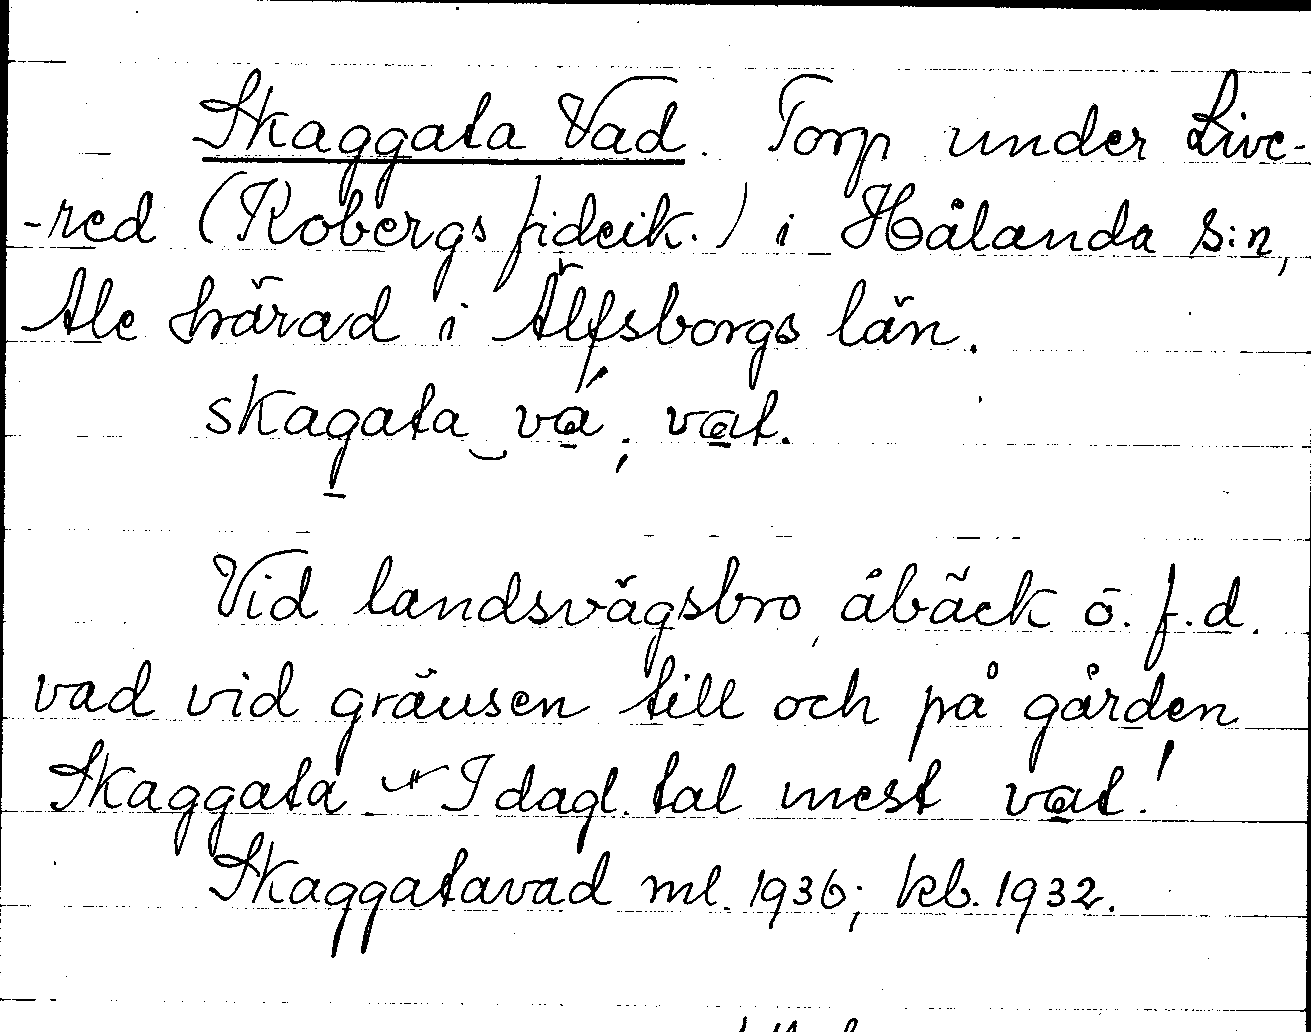 Skaggata Vad. Torp under Live-
-red (Kobergs fideik.) i Hålanda s:n,
Ale härad i Älfsborgs län.
skagata vá; vat.
Vid landsvägsbro, åbäck ö. f.d.
vad vid gränsen till och på gården
Skaggata I dagl. tal mest vat!
Skaggatavad ml. 1936; kb. 1932.